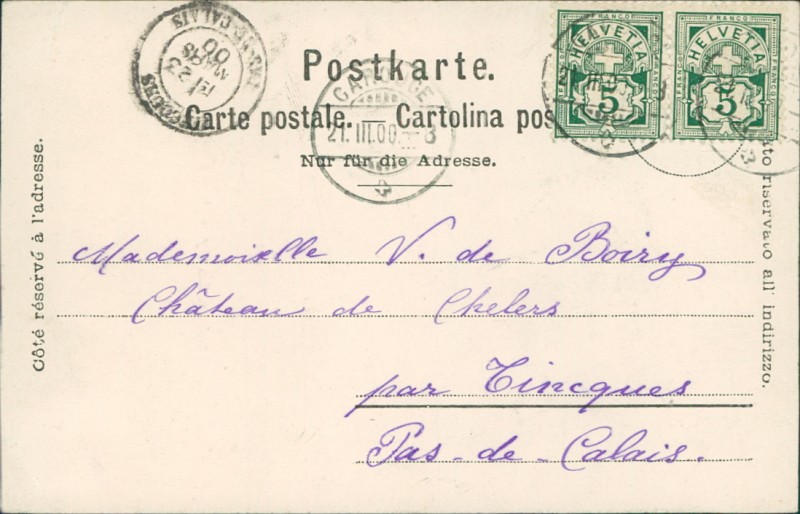 FRANCO FRANCO
HELVETIA HELVETIA
FRANCO FRANCO FRANCO
5 5
Postkarte.
PAS-DE-CALAIS
23
MARS
00
Carte postale. — Cartolina pos
21. III. 00. 8
Nur für die Adresse.
Côté réservé à l'adresse.
ato riservato all' indirizzo.
Mademoiselle V. de Boiry
Château de Chelers
par Tincques
Pas-de-Calais.